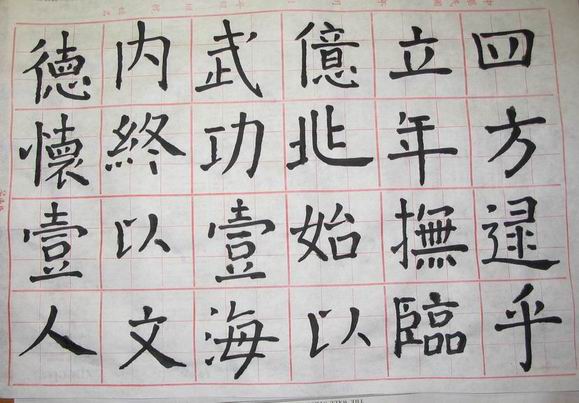 四方逮乎
立年撫臨
億兆始以
武功壹海
内終以文
德懷壹人